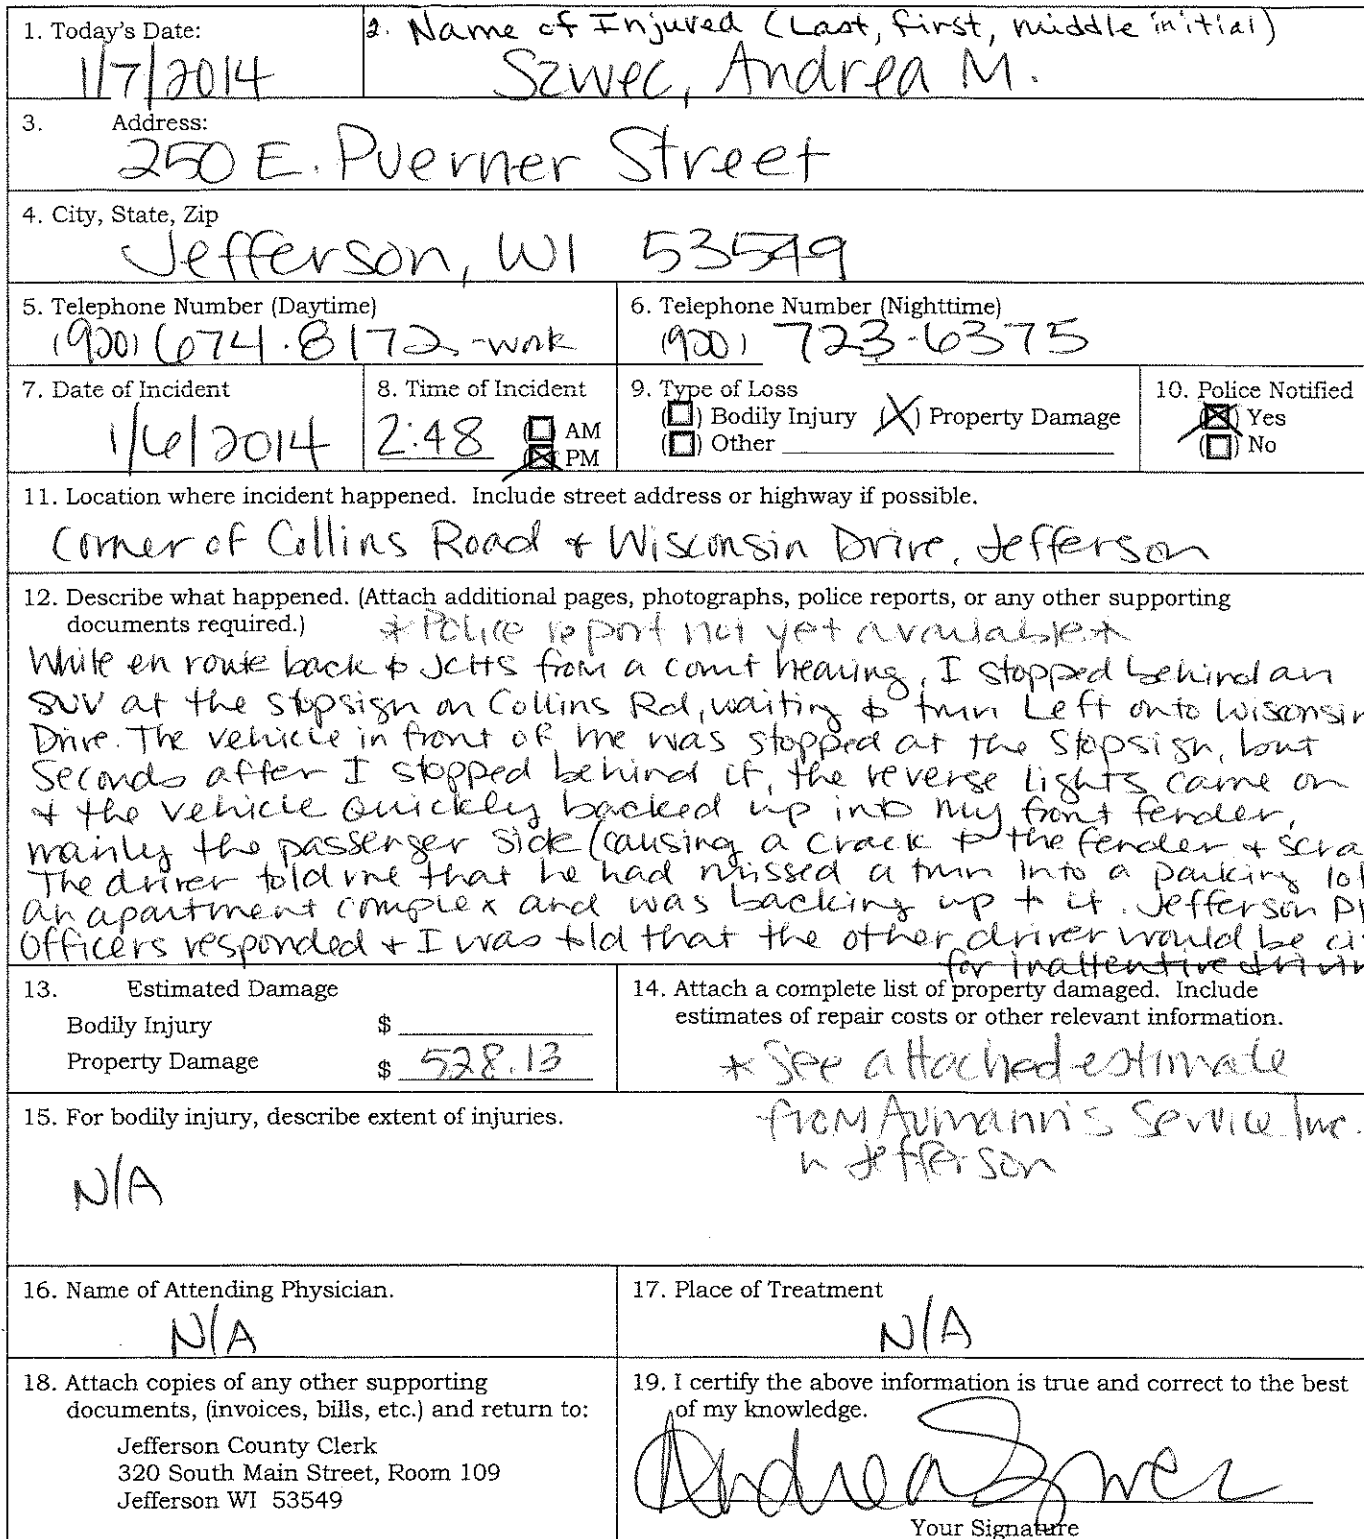 1. Today's Date:
1/7/2014
2. Name of Injured (Last, first, middle initial)
Szwec, Andrea M.
3. Address:
250 E. Puerner Street
4. City, State, Zip
Jefferson, WI 53549
5. Telephone Number (Daytime)
(920) 674-8172-work
6. Telephone Number (Nighttime)
(920) 723-6375
7. Date of Incident
1/6/2014
8. Time of Incident
2:48 ( ) AM
(X) PM
9. Type of Loss
( ) Bodily Injury (X) Property Damage
( ) Other
10. Police Notified
(X) Yes
( ) No
11. Location where incident happened. Include street address or highway if possible.
Corner of Collins Road + Wisconsin Drive, Jefferson
12. Describe what happened. (Attach additional pages, photographs, police reports, or any other supporting
documents required.) *Police report not yet available*
While en route back to from a court hearing, I stopped behind an
SUV at the stopsign on Collins Rd, waiting to turn Left onto Wisconsin
Drive. The vehicle in front of me was stopped at the stopsign, but
seconds after I stopped behind it, the reverse lights came on
+ the vehicle quickly backed up into my front fender,
mainly the passenger side (causing a crack to the fender + scra
The driver told me that he had missed a turn into a parking lot
an apartment complex and was backing up to it. Jefferson P
Officers responded + I was told that the other driver would be ci
for inattentive drivin
13. Estimated Damage
Bodily Injury $
Property Damage $ 528.13
14. Attach a complete list of property damaged. Include
estimates of repair costs or other relevant information.
*See attached estimate
from Aumann's Service Inc.
in Jefferson
15. For bodily injury, describe extent of injuries.
N/A
16. Name of Attending Physician.
N/A
17. Place of Treatment
N/A
18. Attach copies of any other supporting
documents, (invoices, bills, etc.) and return to:
Jefferson County Clerk
320 South Main Street, Room 109
Jefferson WI 53549
19. I certify the above information is true and correct to the best
of my knowledge.
Andrea Szwec
Your Signature